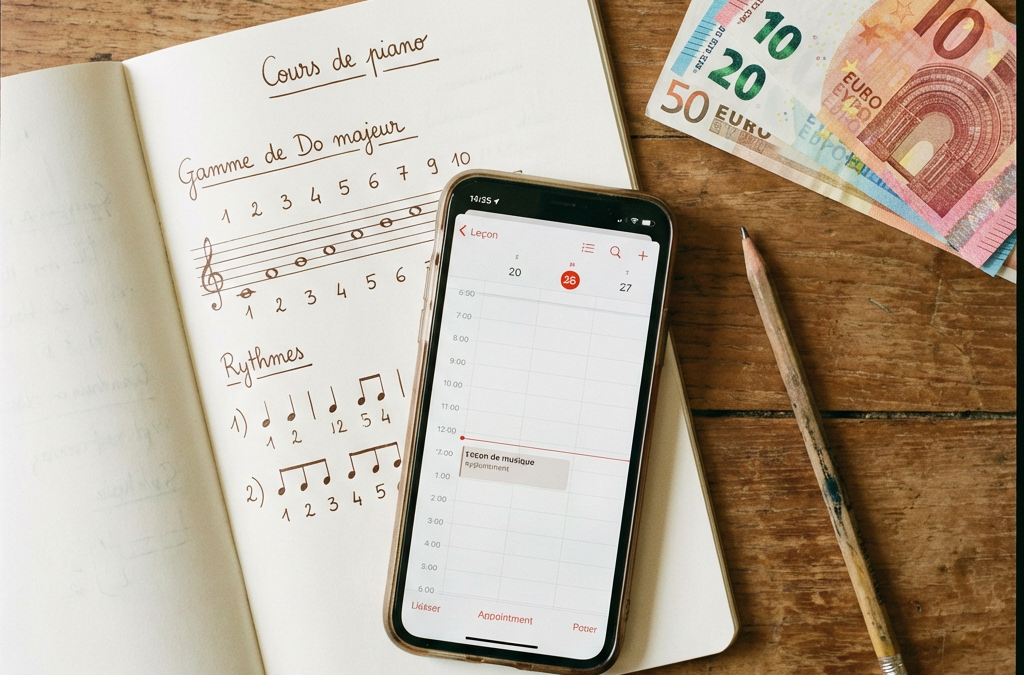 Cours de piano
Gamme de Do majeur
1 2 3 4 5 6 7 9 10
1 2 3 4 5 6
Rythmes
1) 1 2 12 5 4
2) 1 2 3 4 5
Leçon
20 26 27
7:00
8:00
9:00
10:00
11:00
12:00
de musique
1:00
2:00
3:00
4:00
5:00
6:00
Appointment
10
20
50 EURO
10
EURO
EURO